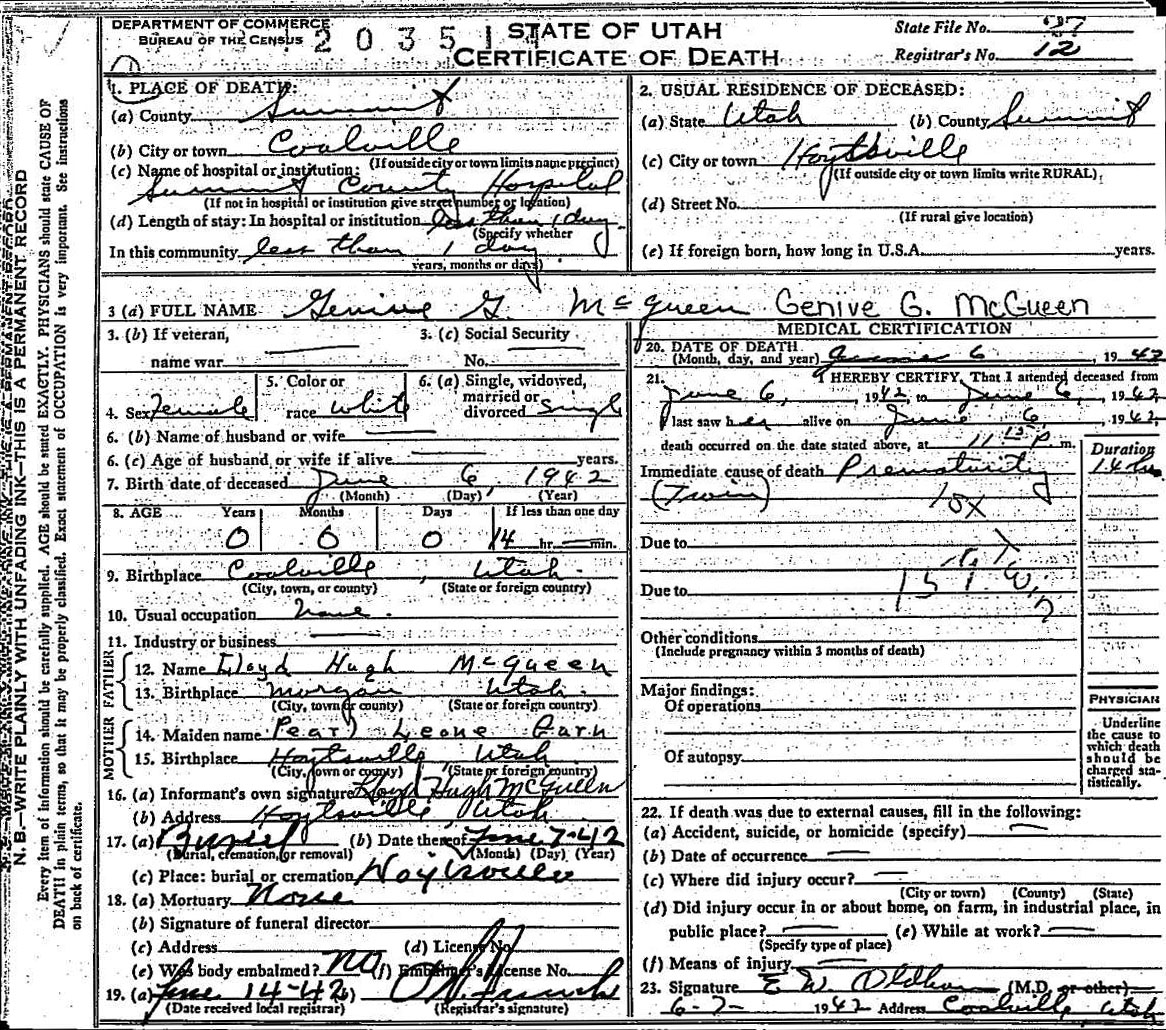 DEPARTMENT OF COMMERCE
BUREAU OF THE CENSUS
2 0 3 5 1
STATE OF UTAH
CERTIFICATE OF DEATH
State File No. 37
Registrar's No. 12
N.B.—WRITE PLAINLY WITH UNFADING INK—THIS IS A PERMANENT RECORD
Every item of information should be carefully supplied. AGE should be stated EXACTLY. PHYSICIANS should state CAUSE OF
DEATH in plain terms, so that it may be properly classified. Exact statement of OCCUPATION is very important. See instructions
on back of certificate.
1. PLACE OF DEATH:
(a) County Summit
(b) City or town Coalville
(If outside city or town limits name precinct)
(c) Name of hospital or institution:
Summit County Hospital
(If not in hospital or institution give street number or location)
(d) Length of stay: In hospital or institution less than 1 day
(Specify whether
In this community less than 1 day
years, months or days)
2. USUAL RESIDENCE OF DECEASED:
(a) State Utah (b) County Summit
(c) City or town Hoytsville
(If outside city or town limits write RURAL)
(d) Street No.
(If rural give location)
(e) If foreign born, how long in U.S.A. years.
3 (a) FULL NAME Genive G. McQueen Genive G. McGueen
3. (b) If veteran,
name war
3. (c) Social Security
No.
4. Sex Female
5. Color or
race white
6. (a) Single, widowed,
married or
divorced Singl
6. (b) Name of husband or wife
6. (c) Age of husband or wife if alive years.
7. Birth date of deceased June 6 1942
(Month) (Day) (Year)
8. AGE Years Months Days If less than one day
0 0 0 14 hr. min.
9. Birthplace Coalville, Utah
(City, town, or county) (State or foreign country)
10. Usual occupation None
11. Industry or business
FATHER
12. Name Lloyd Hugh McQueen
13. Birthplace Morgan Utah
(City, town or county) (State or foreign country)
MOTHER
14. Maiden name Pearl Leone
15. Birthplace Hoytsville Utah
(City, town or county) (State or foreign country)
16. (a) Informant's own signature Lloyd Hugh McQueen
(b) Address Hoytsville, Utah
17. (a) Buriel (b) Date thereof June 7-42
(Burial, cremation, or removal) (Month) (Day) (Year)
(c) Place: burial or cremation Hoytsville
18. (a) Mortuary None
(b) Signature of funeral director
(c) Address (d) License No.
(e) Was body embalmed? No (f) Embalmer's License No.
19. (a) June 14-42 (b)
(Date received local registrar) (Registrar's signature)
MEDICAL CERTIFICATION
20. DATE OF DEATH
(Month, day, and year) June 6, 1942
21. I HEREBY CERTIFY, That I attended deceased from
June 6, 1942, to June 6, 1942
I last saw her alive on June 6, 1942
death occurred on the date stated above, at 11 15 P m.
Duration
Immediate cause of death Prematurity 14 hr.
(Twin)
Due to
1st Twin
Due to
Other conditions
(Include pregnancy within 3 months of death)
Major findings:
Of operations
Of autopsy
PHYSICIAN
Underline
the cause to
which death
should be
charged sta-
tistically.
22. If death was due to external causes, fill in the following:
(a) Accident, suicide, or homicide (specify)
(b) Date of occurrence
(c) Where did injury occur?
(City or town) (County) (State)
(d) Did injury occur in or about home, on farm, in industrial place, in
public place? (e) While at work?
(Specify type of place)
(f) Means of injury
23. Signature E W Oldham (M.D. or other)
6-7- 1942 Address Coalville, Utah